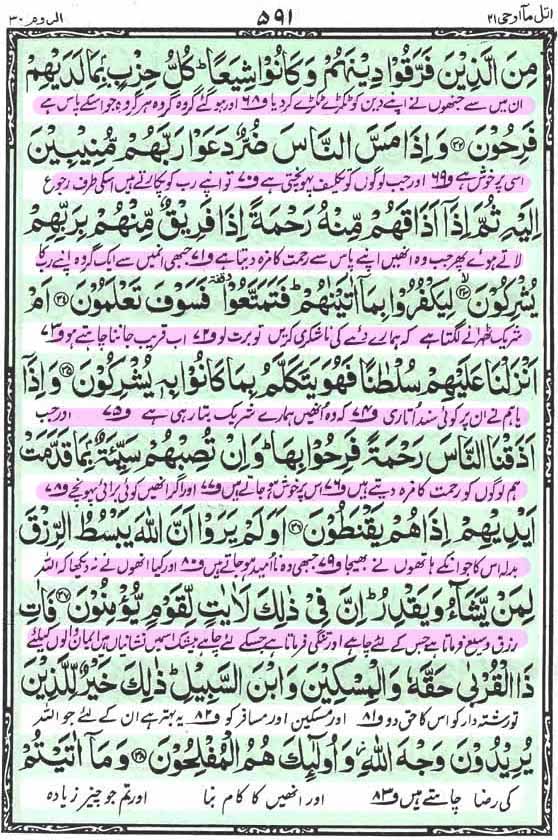 اتل مآ اوحی ۲۱ ۵۹۱ الروم ۳۰
مِنَ الَّذِیْنَ فَرَّقُوْا دِیْنَهُمْ وَكَانُوْا شِیَعًا ؕ كُلُّ حِزْبٍۭ بِمَا لَدَیْهِمْ
ان میں سے جنھوں نے اپنے دین کو ٹکڑے ٹکڑے کر دیا و۶۸ اور ہو گئے گروہ گروہ ہر گروہ جو اسکے پاس ہے
فَرِحُوْنَ ﴿۳۲﴾ وَ اِذَا مَسَّ النَّاسَ ضُرٌّ دَعَوْا رَبَّهُمْ مُّنِیْبِیْنَ
اسی پر خوش ہے و۶۹ اور جب لوگوں کو تکلیف پہونچتی ہے و۷۰ تو اپنے رب کو پکارتے ہیں اسکی طرف رجوع
اِلَیْهِ ثُمَّ اِذَاۤ اَذَاقَهُمْ مِّنْهُ رَحْمَةً اِذَا فَرِیْقٌ مِّنْهُمْ بِرَبِّهِمْ
لاتے ہوئے پھر جب وہ انھیں اپنے پاس سے رحمت کا مزہ دیتا ہے و۷۱ جبھی انمیں سے ایک گروہ اپنے رب کا
یُشْرِكُوْنَ ﴿۳۳﴾ لِیَكْفُرُوْا بِمَاۤ اٰتَیْنٰهُمْ ؕ فَتَمَتَّعُوْا ٝ فَسَوْفَ تَعْلَمُوْنَ ﴿۳۴﴾ اَمْ
شریک ٹھہرانے لگتا ہے کہ ہمارے دئے کی ناشکری کریں تو برت لو و۷۲ اب قریب جاننا چاہتے ہو و۷۳
اَنْزَلْنَا عَلَیْهِمْ سُلْطٰنًا فَهُوَ یَتَكَلَّمُ بِمَا كَانُوْا بِهٖ یُشْرِكُوْنَ ﴿۳۵﴾ وَ اِذَاۤ
یا ہم نے ان پر کوئی سند اتاری و۷۴ کہ وہ انھیں ہمارے شریک بتا رہی ہے و۷۵ اور جب
اَذَقْنَا النَّاسَ رَحْمَةً فَرِحُوْا بِهَا ؕ وَ اِنْ تُصِبْهُمْ سَیِّئَةٌۢ بِمَا قَدَّمَتْ
ہم لوگوں کو رحمت کا مزہ دیتے ہیں و۷۶ اس پر خوش ہو جاتے ہیں و۷۷ اور اگر انھیں کوئی برائی پہونچے و۷۸
اَیْدِیْهِمْ اِذَا هُمْ یَقْنَطُوْنَ ﴿۳۶﴾ اَوَ لَمْ یَرَوْا اَنَّ اللّٰهَ یَبْسُطُ الرِّزْقَ
بدلہ اس کا جو انکے ہاتھوں نے بھیجا و۷۹ جبھی وہ ناامید ہو جاتے ہیں و۸۰ اور کیا انھوں نے نہ دیکھا کہ اللہ
لِمَنْ یَّشَآءُ وَ یَقْدِرُ ؕ اِنَّ فِیْ ذٰلِكَ لَاٰیٰتٍ لِّقَوْمٍ یُّؤْمِنُوْنَ ﴿۳۷﴾ فَاٰتِ
رزق وسیع فرماتا ہے جس کے لئے چاہے اور تنگی فرماتا ہے جسکے لئے چاہے بیشک اسمیں نشانیاں ہیں ایمان والوں کیلئے
ذَا الْقُرْبٰى حَقَّهٗ وَ الْمِسْكِیْنَ وَ ابْنَ السَّبِیْلِ ؕ ذٰلِكَ خَیْرٌ لِّلَّذِیْنَ
تو رشتہ دار کو اس کا حق دو و۸۱ اور مسکین اور مسافر کو و۸۲ یہ بہتر ہے ان کے لئے جو اللہ
یُرِیْدُوْنَ وَجْهَ اللّٰهِ ؗ وَ اُولٰٓئِكَ هُمُ الْمُفْلِحُوْنَ ﴿۳۸﴾ وَ مَاۤ اٰتَیْتُمْ
کی رضا چاہتے ہیں و۸۳ اور انھیں کا کام بنا اور تم جو چیز زیادہ